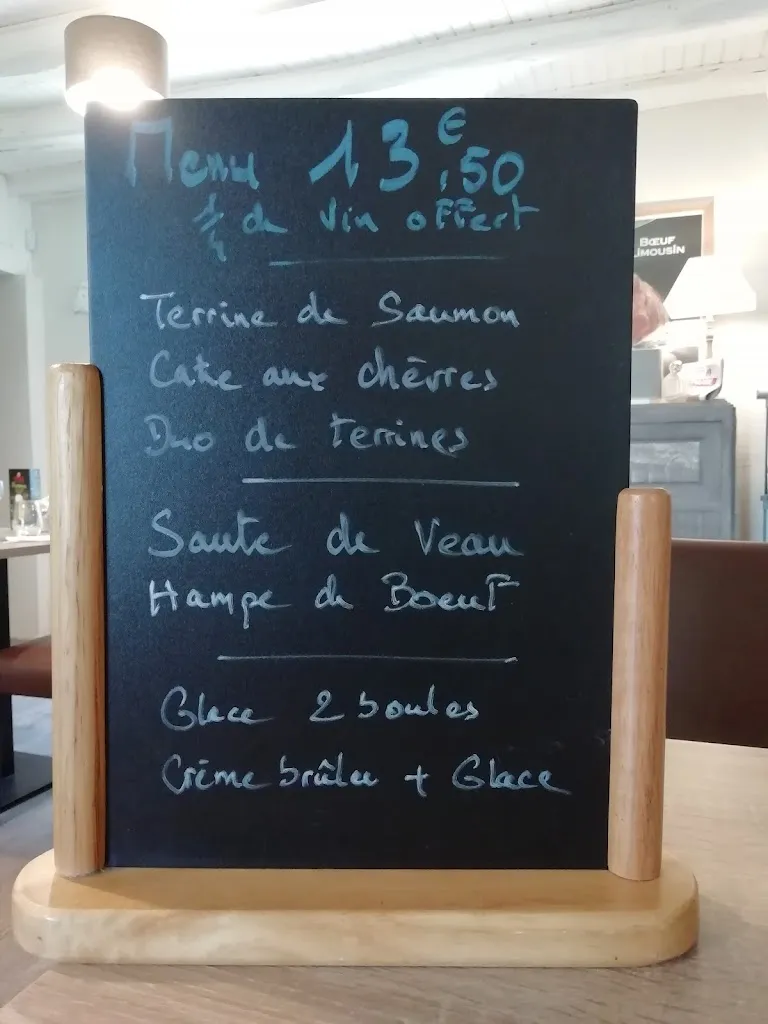 Menu 13€,50
1/4 de vin offert
Terrine de Saumon
Cake aux chèvres
Duo de terrines
Saute de Veau
Hampe de Boeuf
Glace 2 boules
Crème brûlee + Glace
BŒUF
LIMOUSIN